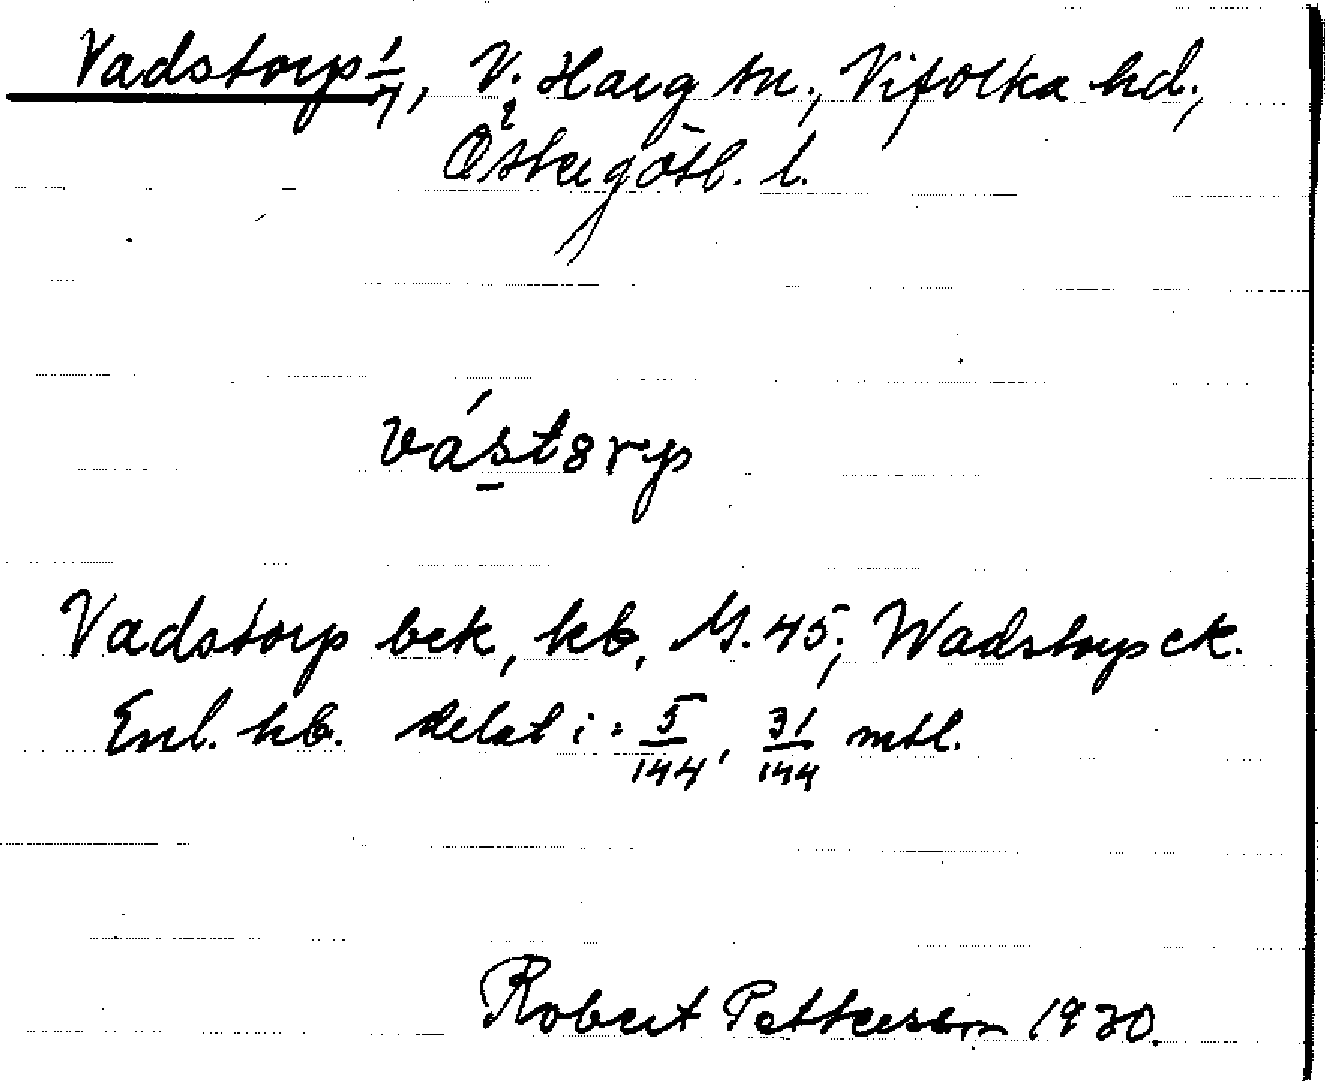 Vadstorp 1/7, V. Harg sn., Vifolka hd.,
Östergötl. l.
vástorp
Vadstorp bek, kb, M. 45; Wadstorp ek.
Enl. kb. delat i: 5/144, 31/144 mtl.
Robert Petterson 1930.